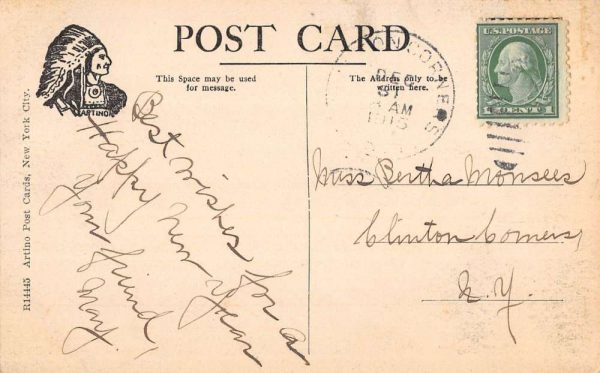 POST CARD
This Space may be used
for message.
The Address only to be
written here.
ARTINO
R14445 Artino Post Cards, New York City.
Best wishes for a
Happy New Year
your friend,
May.
ON CORNERS
DEC
31
AM
U.S. POSTAGE
1 CENT 1
Miss Bertha Monsees
Clinton Corners,
N.Y.